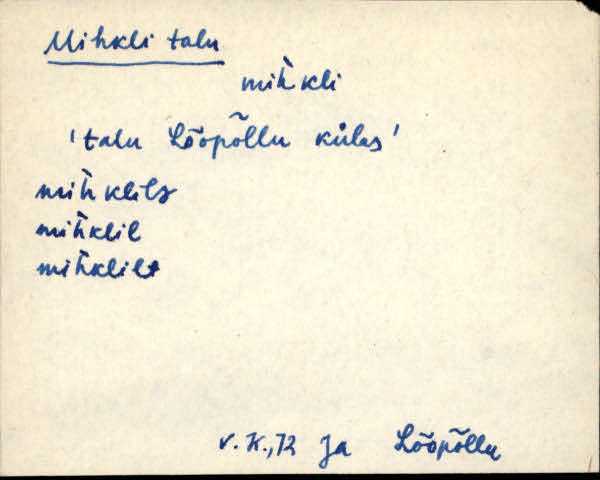 Mihkli talu
mih̀kli
'talu Lõopõllu külas'
mih̀klile
mih̀klil
mih̀klilt
V.K., 72 Ja Lõopõllu